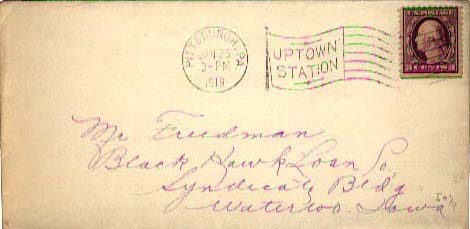 PITTSBURGH, PA.
JAN 25
3-PM
1919
UPTOWN
STATION
U.S. POSTAGE
3 CENTS 3
Mr Freedman
Black Hawk Loan Co,
Syndicate Bldg
Waterloo. Iowa